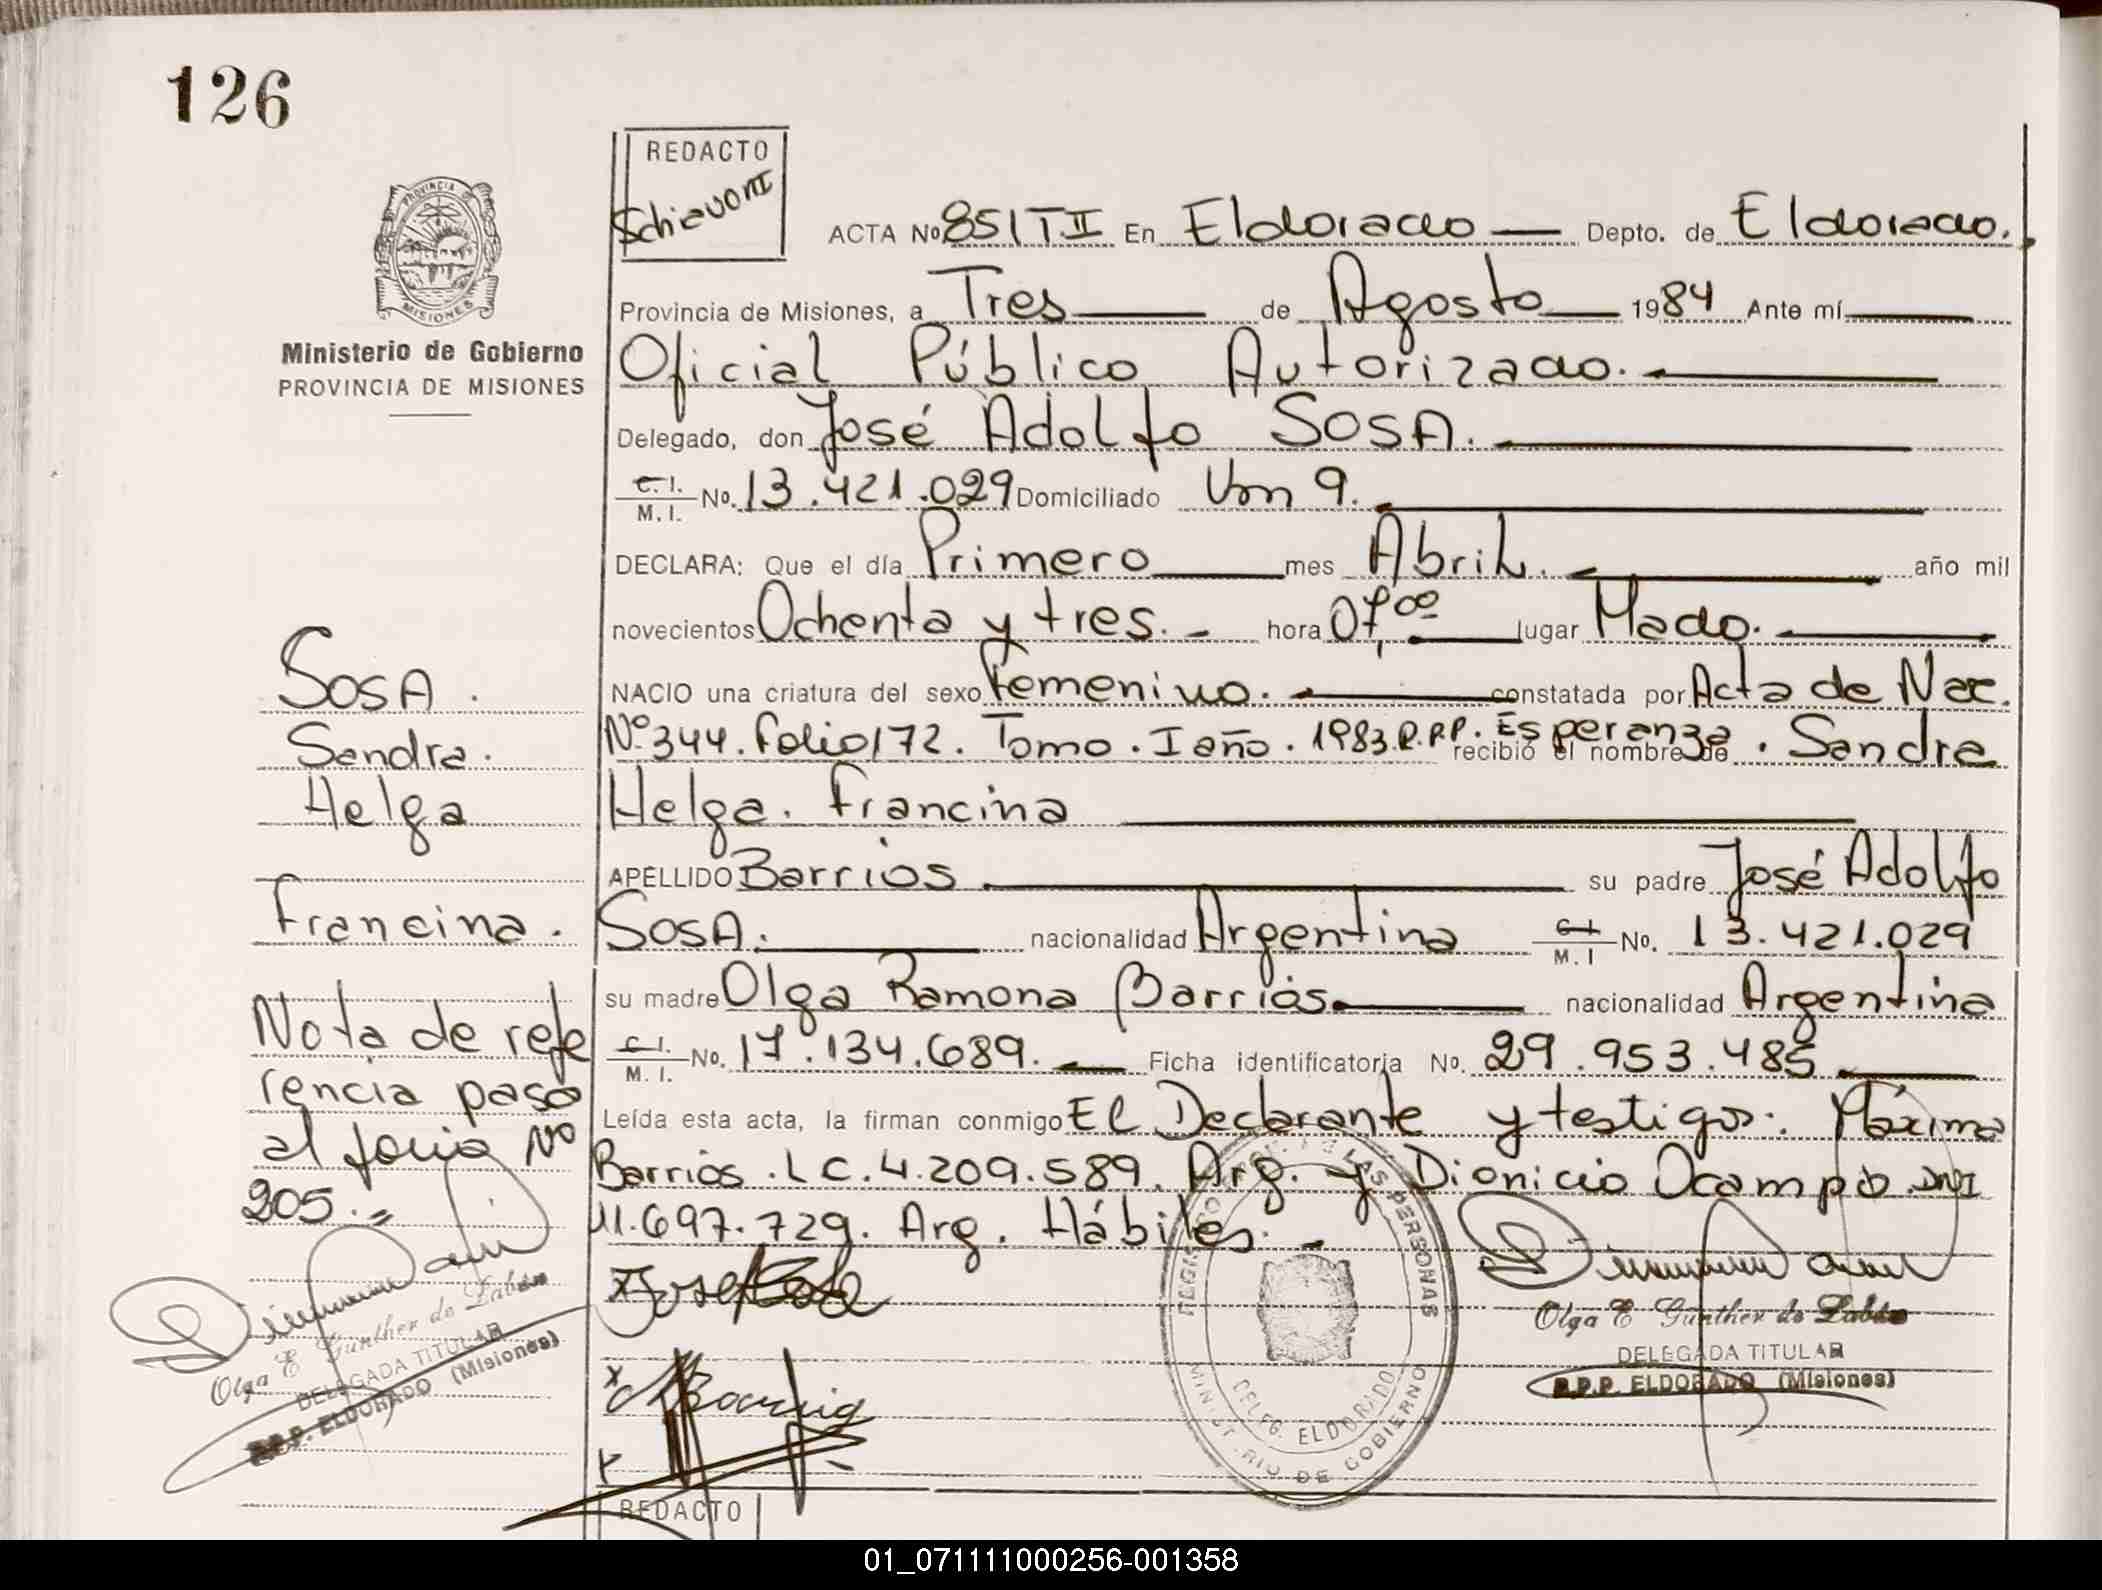 126
REDACTO
Schiavoni
PROVINCIA DE
MISIONES
Ministerio de Gobierno
PROVINCIA DE MISIONES
ACTA Nº 851 T II En Eldorado Depto. de Eldorado.
Provincia de Misiones, a Tres de Agosto 1984 Ante mí
Oficial Público Autorizado.
Delegado, don José Adolfo SOSA.
C. I. M. I. No. 13.421.029 Domiciliado Km 9.
DECLARA: Que el día Primero mes Abril. año mil
novecientos Ochenta y tres. hora 07,00 lugar Mado.
NACIO una criatura del sexo Femenino. constatada por Acta de Nac.
Nº 344. Folio 172. Tomo. I año. 1983. R.P.P. Esperanza. recibió el nombre de Sandra
Helga. Francina
APELLIDO Barrios su padre José Adolfo
SOSA. nacionalidad Argentina C. I. M. I No. 13.421.029
su madre Olga Ramona Barrios. nacionalidad Argentina
C. I. M. I. No. 17.134.689. Ficha identificatoria No. 29.953.485
Leída esta acta, la firman conmigo El Declarante y testigos: Máxima
Barrios. L C. 4.209.589. Arg. y Dionicio Ocampo. DNI
11.697.729. Arg. Hábiles.
SOSA.
Sandra.
Helga
Francina.
Nota de refe
rencia paso
al folio Nº
205.
Olga E Gunther de
DELEGADA TITULAR
R.P.P. ELDORADO (Misiones)
LAS PERSONAS
DELEG. ELDORADO
MINISTERIO DE GOBIERNO
Olga E Gunther de
DELEGADA TITULAR
R.P.P. ELDORADO (Misiones)
REDACTO
01_071111000256-001358